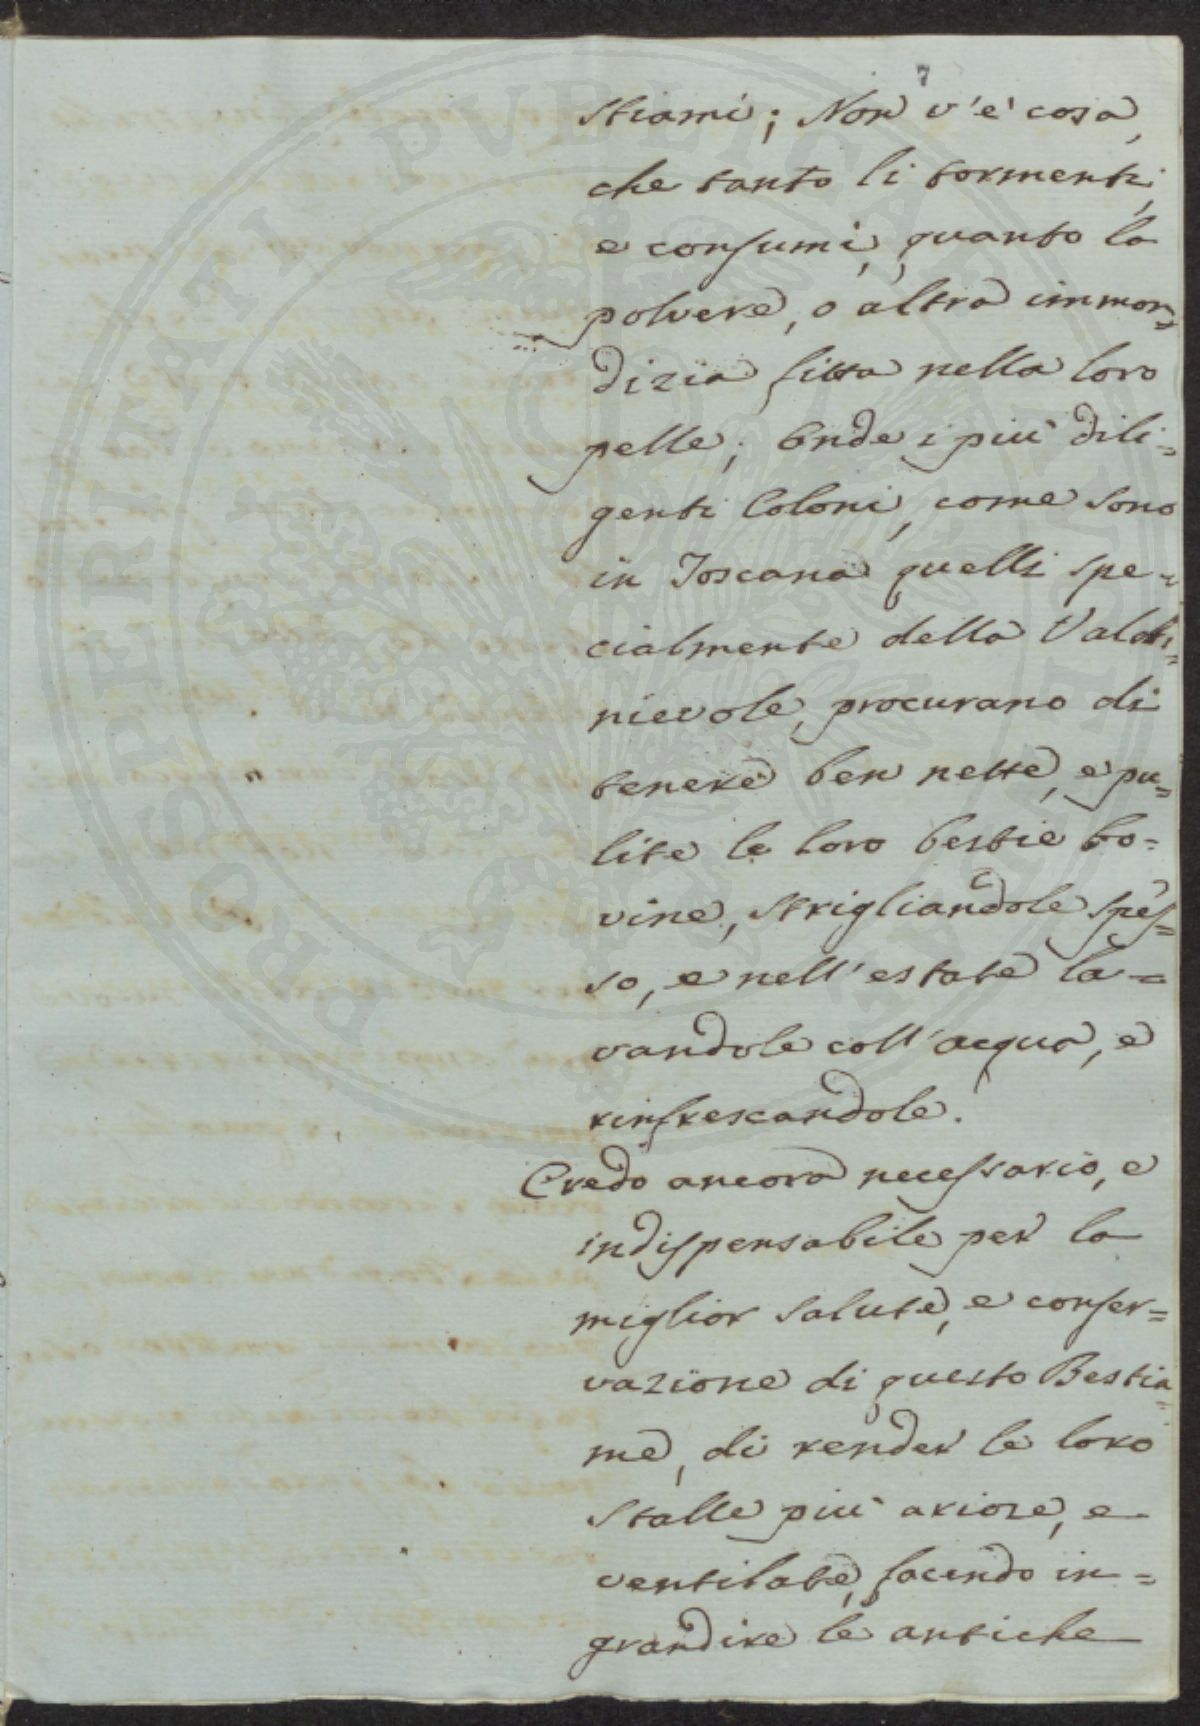 7
stiami; Non v'è cosa,
che tanto li tormenti,
e consumi, quanto la
polvere, o altra immon=
dizia fitta nella loro
pelle; Onde i più dili=
genti Coloni, come sono
in Toscana quelli spe=
cialmente della Valdi=
nievole, procurano di
tenere ben nette, e pu=
lite le loro bestie bo=
vine, strigliandole spes=
so, e nell'estate la=
vandole coll'acqua, e
rinfrescandole.
Credo ancora necessario, e
indispensabile per la
miglior salute, e conser=
vazione di questo Bestia=
me, di render le loro
Stalle più ariose, e
ventilate, facendo in=
grandire le antiche
PROSPERITATI PUBLICAE AUGENDAE